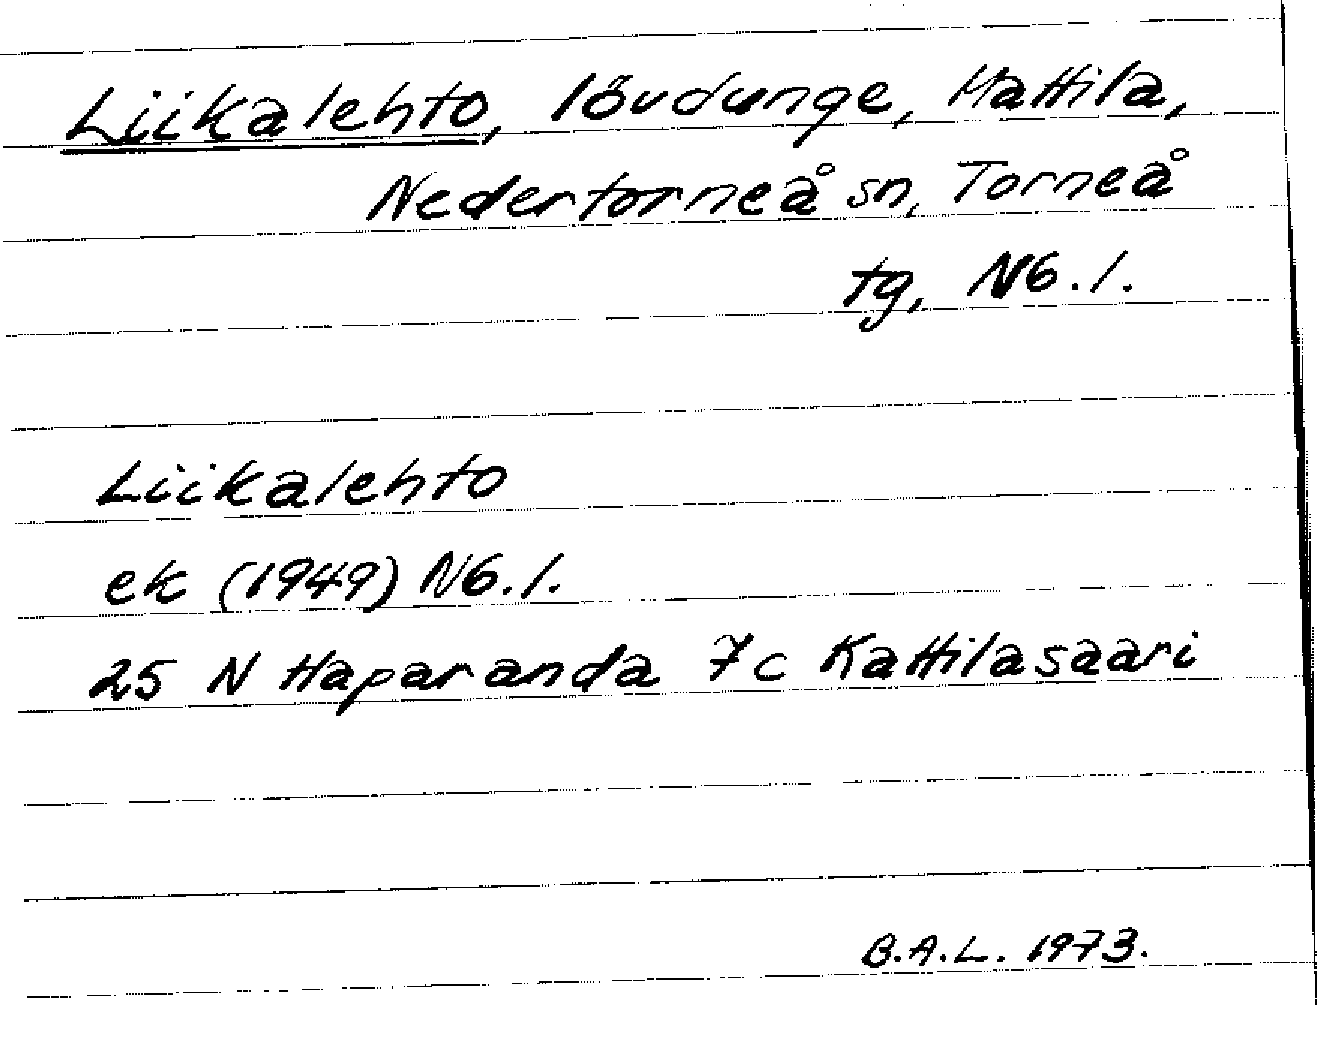 Liikalehto, lövdunge, Mattila,
Nedertorneå sn, Torneå
tg, N6.1.
Liikalehto
ek (1949) N6.1.
25 N Haparanda 7c Kattilasaari
B.A.L. 1973.